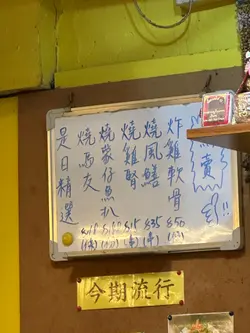 賣!!
炸雞軟骨 $50
燒風鱔 $35
燒雞腎 $15
燒仔魚扒
燒馬友
是日精選
今期流行